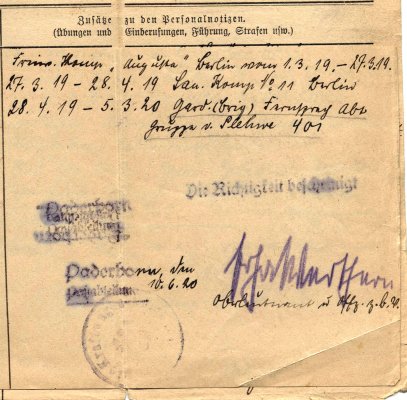 Zusätze zu den Personalnotizen.
(Übungen und Einberufungen, Führung, Strafen usw.)
Freiw. Komp. „Augusta" Berlin vom 1.3.19. - 27.3.19.
27.3.19 - 28.4.19 San. Komp. No 11 Berlin
28.4.19 - 5.3.20 Gard. (Brig) Fernsprech Abt.
Gruppe v. Plehwe 401
Die Richtigkeit bescheinigt
Paderborn
Paderborn, den
10.6.20
Oberleutnant u. Offz. z. b. V.